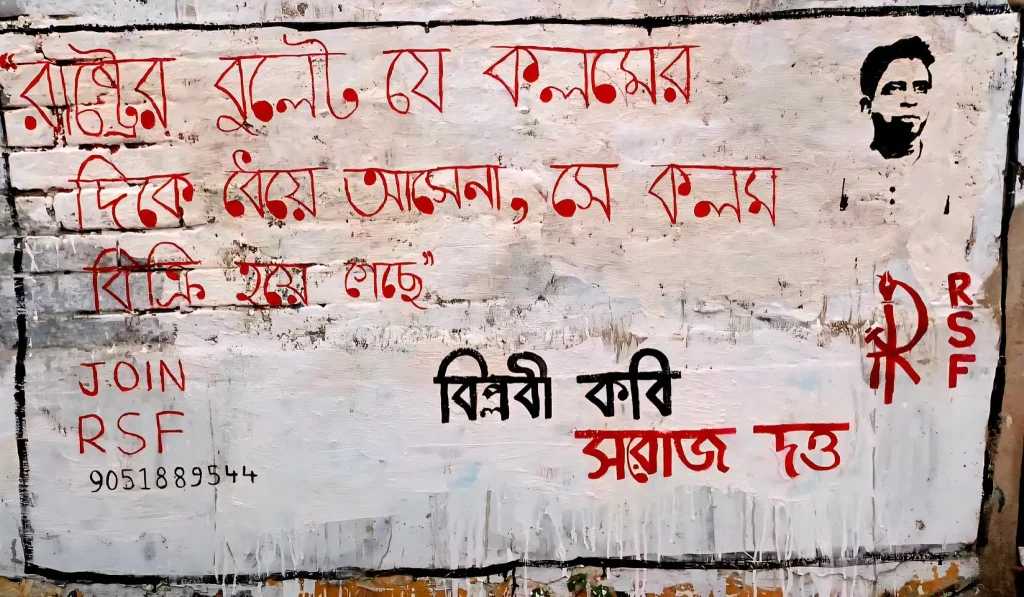 “রাষ্ট্রের বুলেট যে কলমের
দিকে ধেয়ে আসেনা, সে কলম
বিক্রি হয়ে গেছে”
RSF
JOIN
RSF
9051889544
বিপ্লবী কবি
সরোজ দত্ত